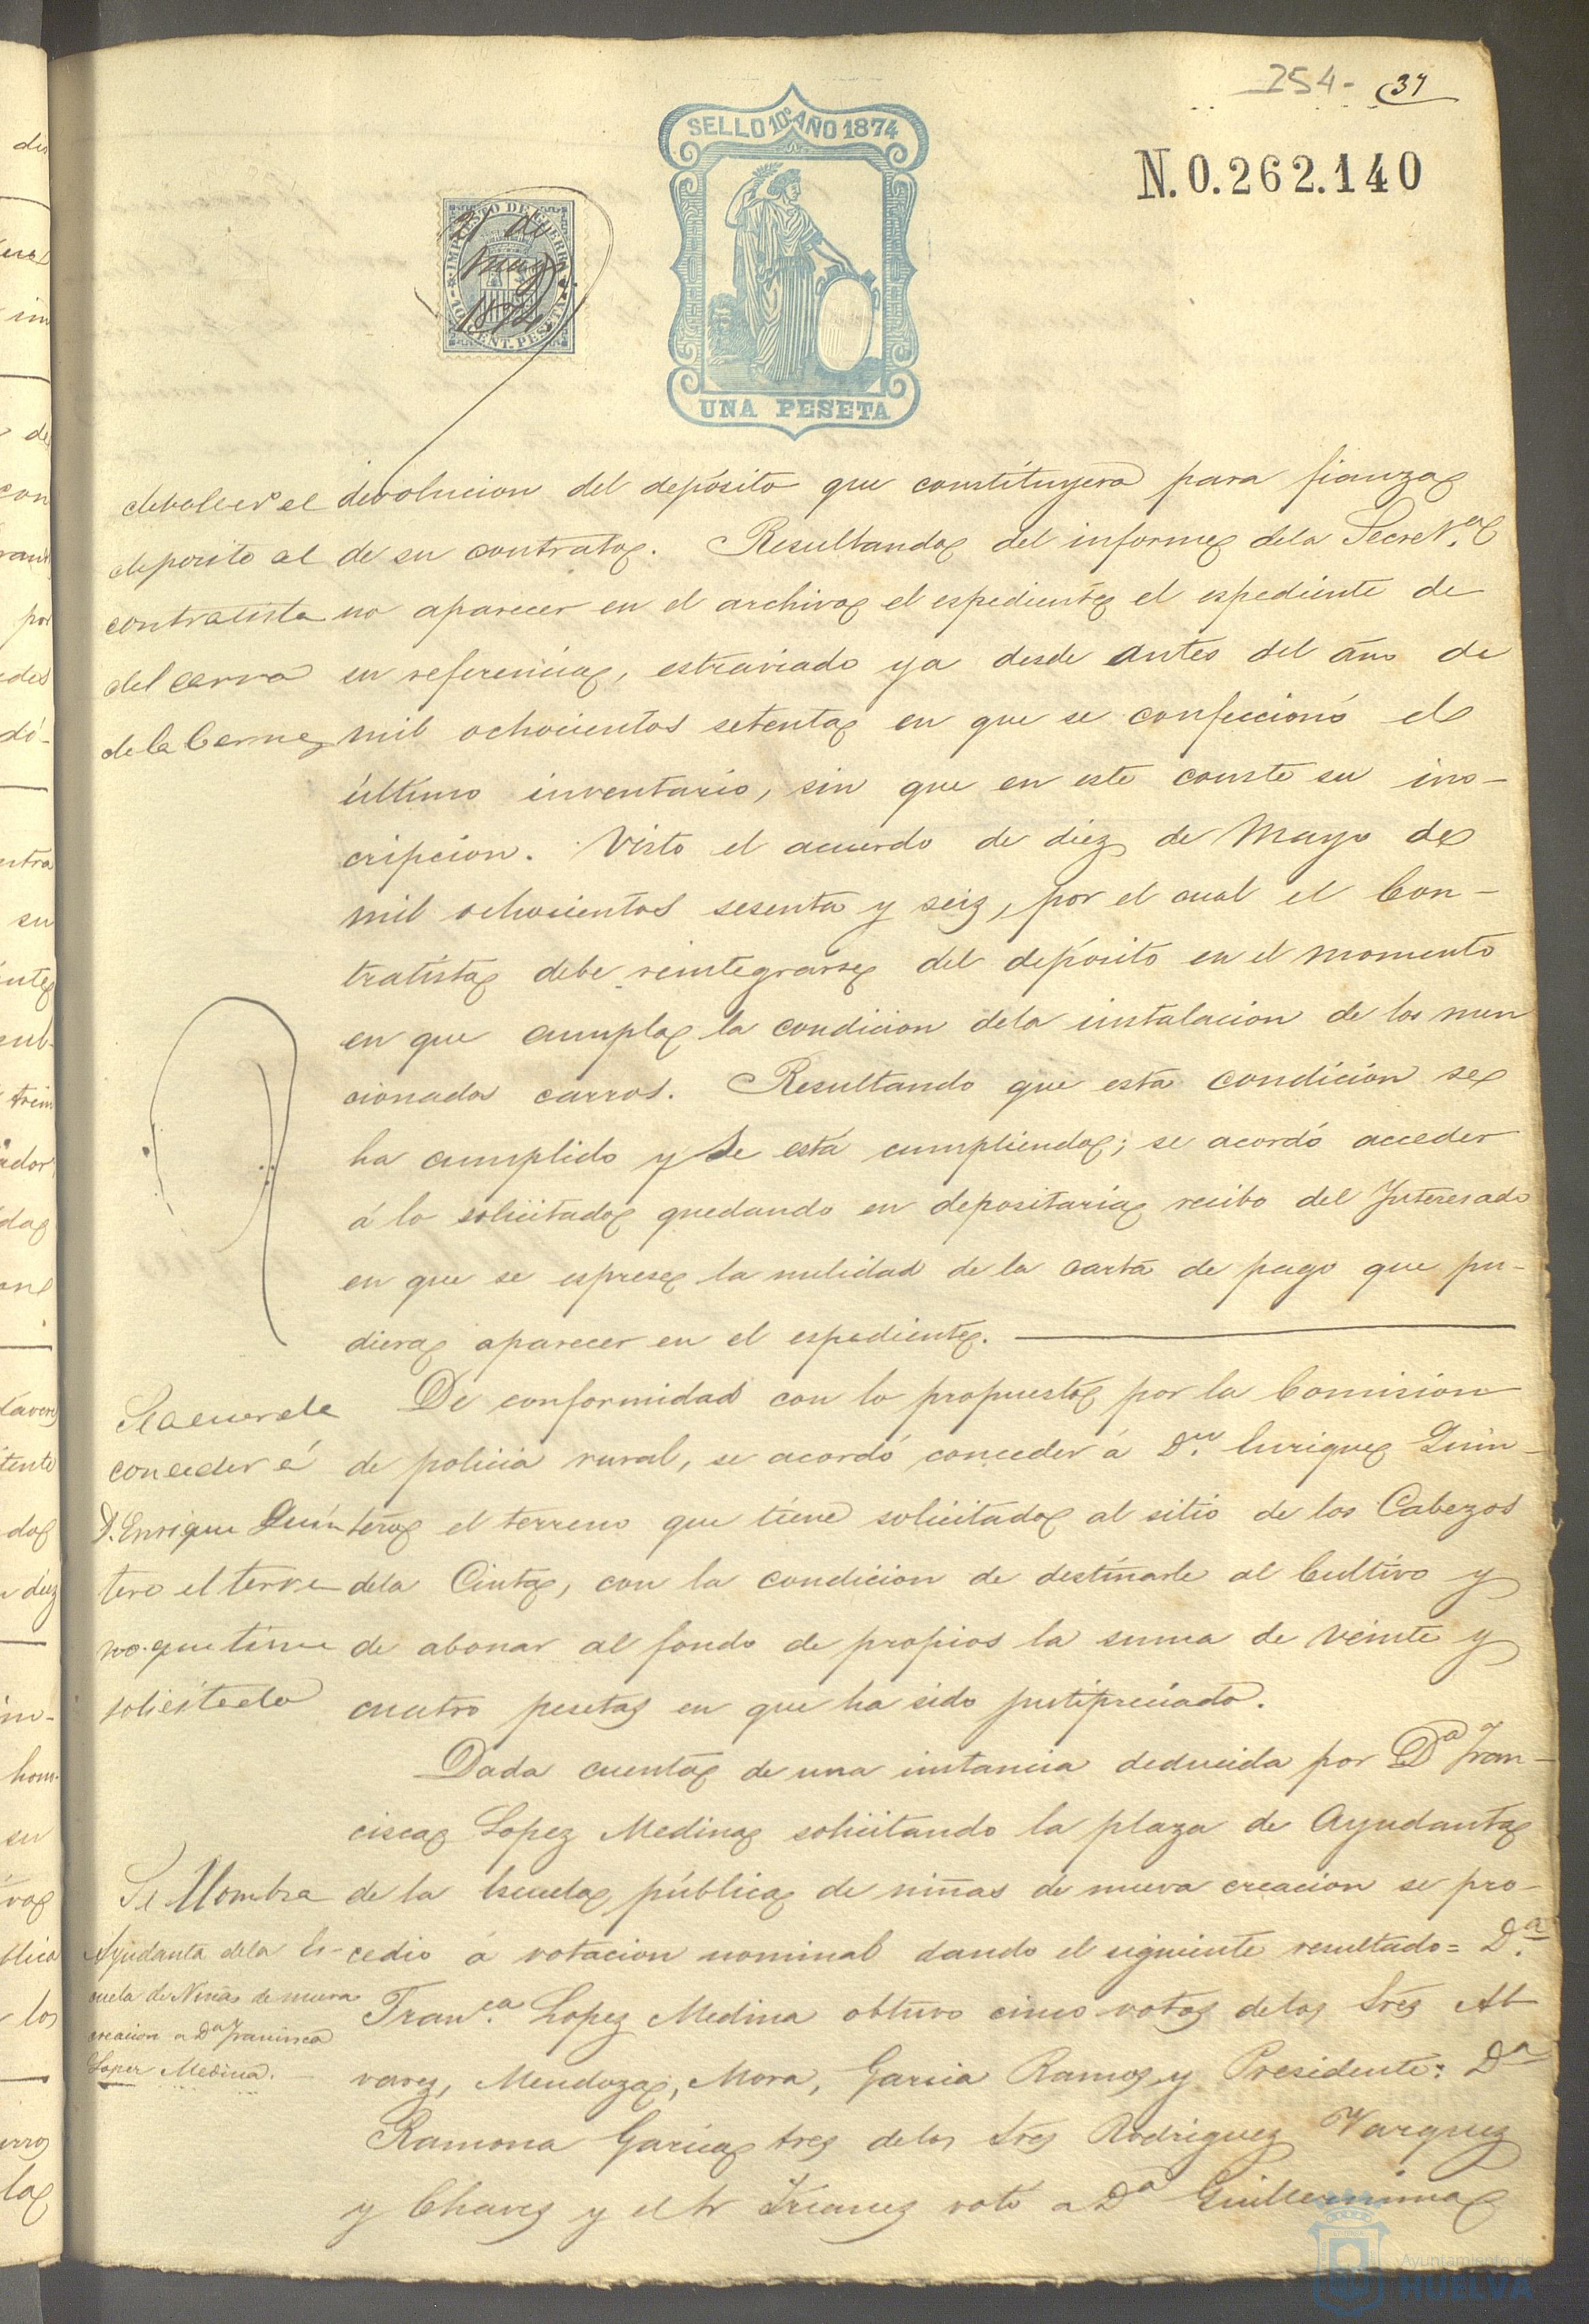 254- 37
SELLO 10º AÑO 1874
N. 0.262.140
IMPUESTO DE GUERRA
21 de
Mayo
1874
10 CENT. PESETA
UNA PESETA
devolver el
deposito al
contratista
del carro
de la Carne
devolucion del depósito que constituyera para fianza
de su contrato. Resultando del informe dela Secret.ª
no aparecer en el archivo el espediente el espediente de
su referencia, estraviado ya desde antes del año de
mil ochocientos setenta en que se confeccionó el
último inventario, sin que en este conste su ins-
cripcion. Visto el acuerdo de diez de Mayo de
mil ochocientos sesenta y seiz, por el cual el Con-
tratista debe reintegrarse del depósito en el momento
en que cumpla la condicion dela instalacion de los men
cionados carros. Resultando que esta condicion se
ha cumplido y se está cumpliendo; se acordó acceder
á lo solicitado quedando en depositaria recibo del Interesado
en que se esprese la nulidad de la carta de pago que pu-
diera aparecer en el espediente.
Se acuerda
conceder á
D. Enrique Quin
tero el terre
no que tiene
solicitado
De conformidad con lo propuesto por la Comision
de policia rural, se acordó conceder á D.n Enrique Quin-
tero el terreno que tiene solicitado al sitio de los Cabezos
dela Cinta, con la condicion de destinarle al Cultivo y
de abonar al fondo de propios la suma de veinte y
cuatro pesetas en que ha sido justipreciado.
Dada cuenta de una instancia deducida por Dª Fran-
cisca Lopez Medina solicitando la plaza de Ayudanta
Se Nombra
Ayudanta dela Es-
cuela de Niñas de nueva
creacion a Dª Francisca
Lopez Medina.
de la Escuela pública de niñas de nueva creacion se pro-
cedio á votacion nominal dando el siguiente resultado= D.ª
Fran.ca Lopez Medina obtuvo cinco votos delos Sres Al
varez, Mendoza, Mora, Garcia Ramos y Presidente: Dª
Ramona Garcia tres delos Sres Rodriguez Vazquez
y Chavez y el Sr votó a Dª Guillermina
Ayuntamiento de
HUELVA